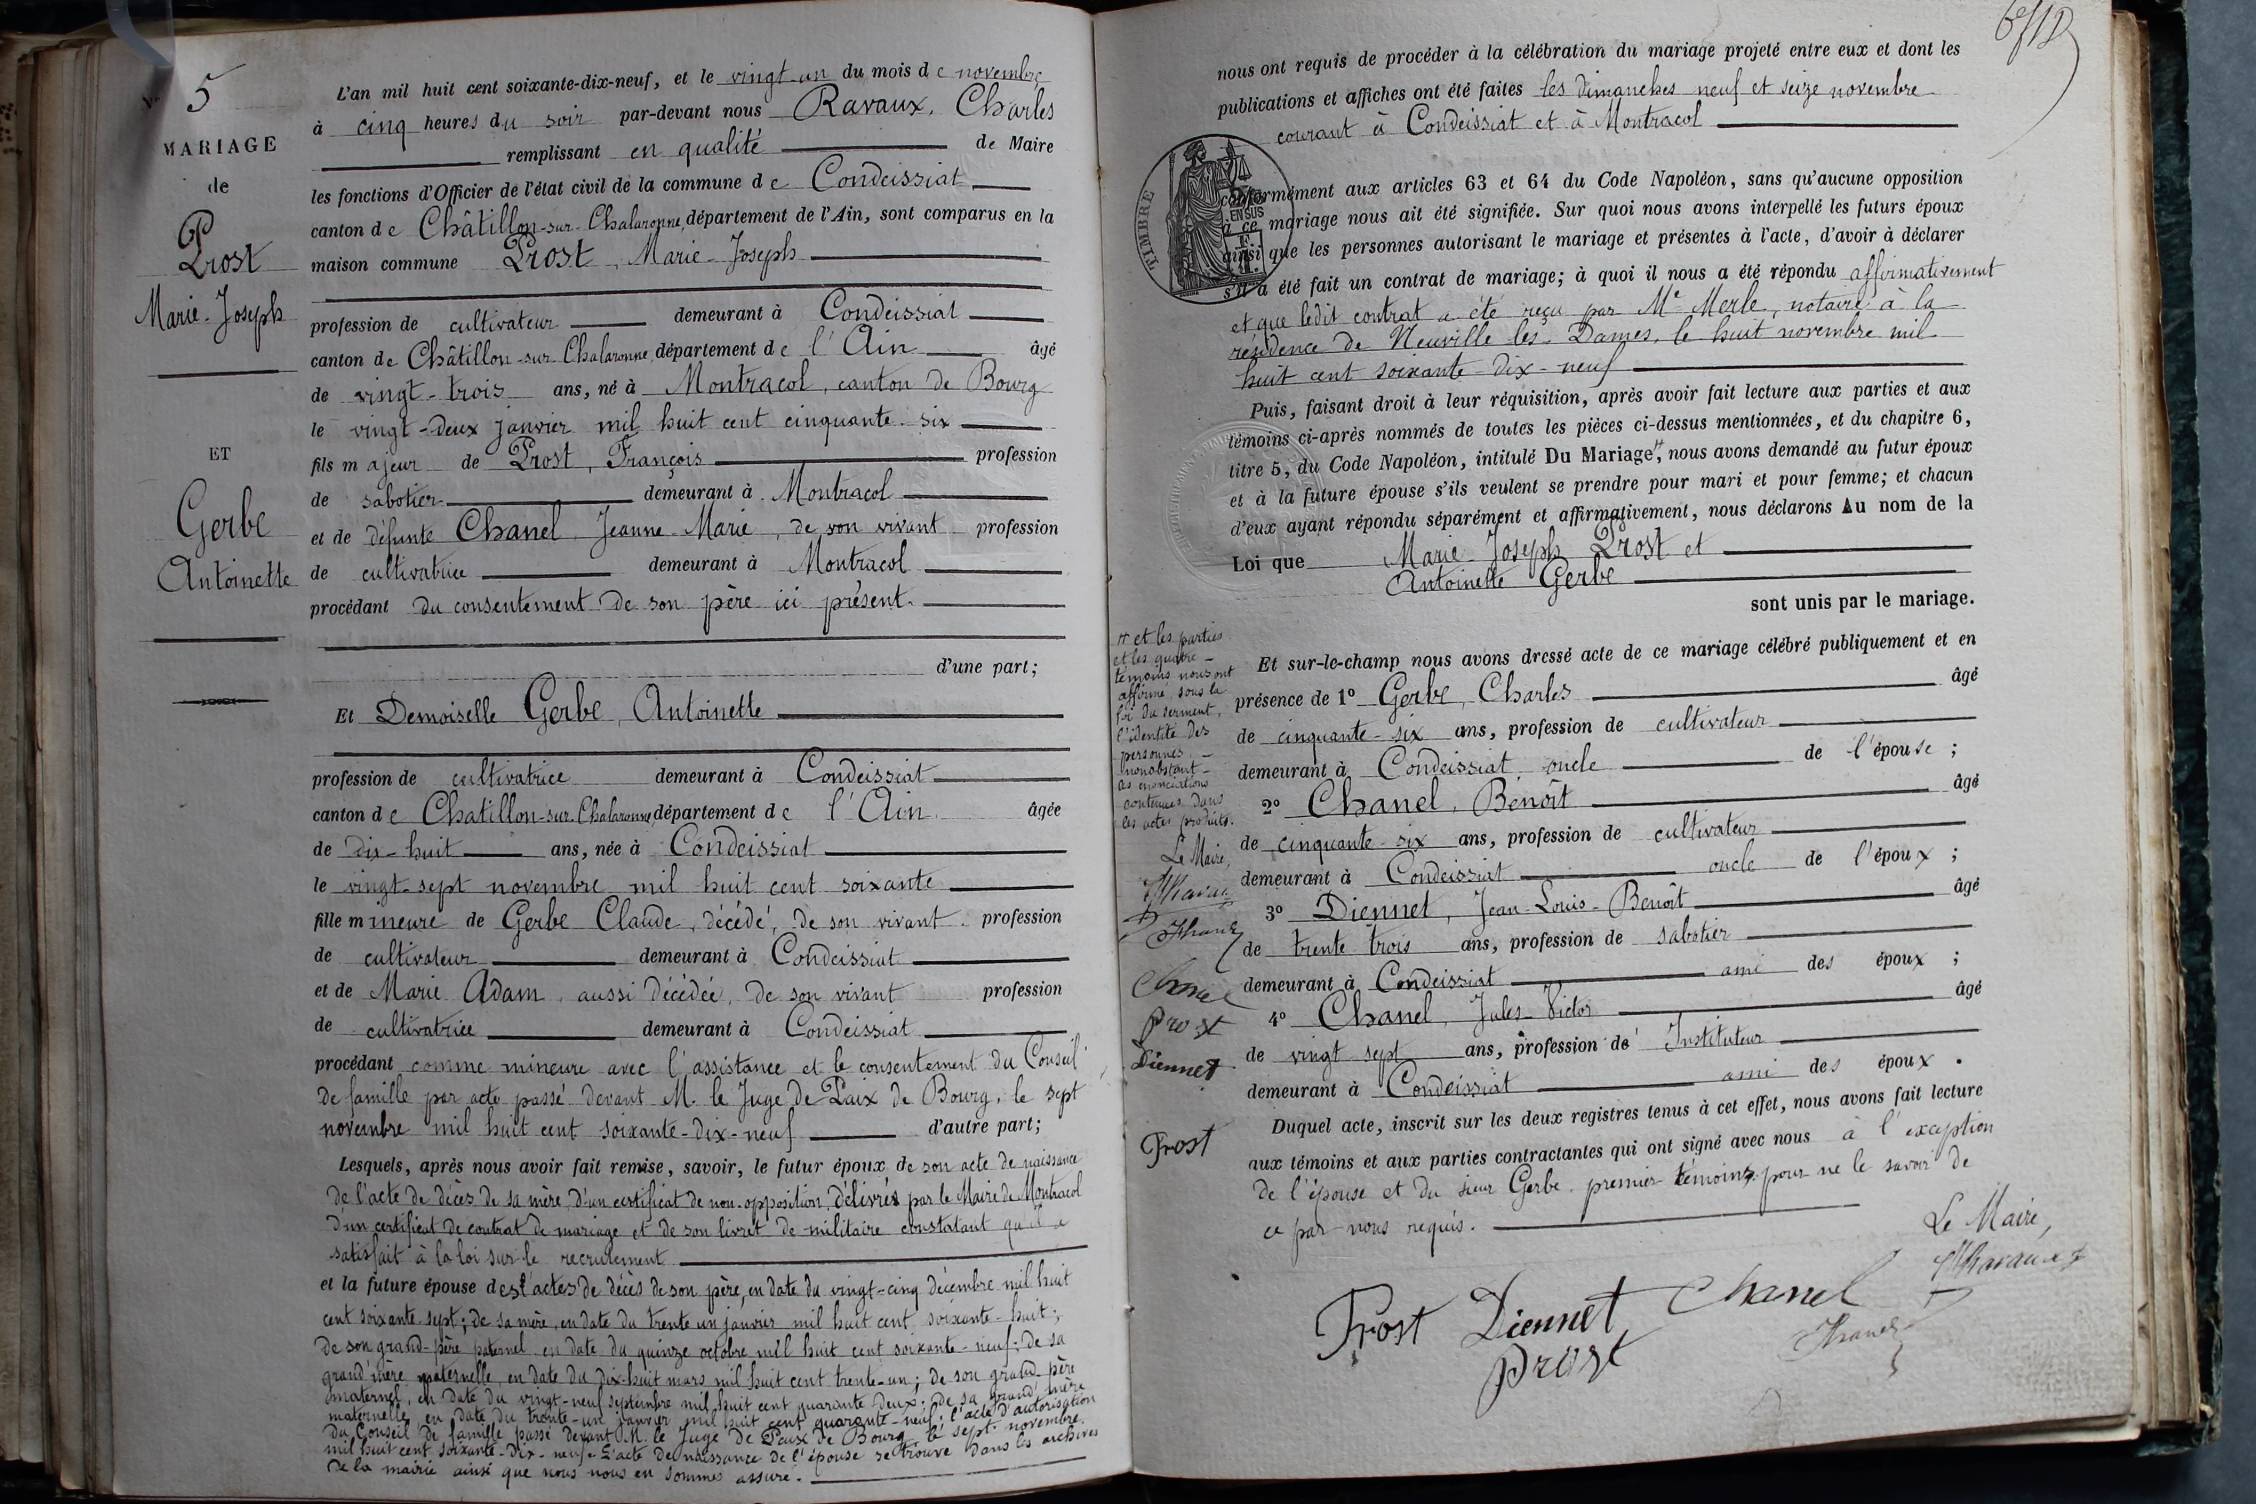 N° 5
MARIAGE
de
Prost
Marie-Joseph
ET
Gerbe
Antoinette
L'an mil huit cent soixante-dix-neuf, et le vingt-un du mois de novembre
à cinq heures du soir par-devant nous Ravaux, Charles
remplissant en qualité de Maire
les fonctions d'Officier de l'état civil de la commune de Condeissiat
canton de Châtillon-sur-Chalaronne, département de l'Ain, sont comparus en la
maison commune Prost, Marie-Joseph
profession de cultivateur demeurant à Condeissiat
canton de Châtillon-sur-Chalaronne, département de l'Ain âgé
de vingt-trois ans, né à Montracol, canton de Bourg
le vingt-deux janvier mil huit cent cinquante-six
fils majeur de Prost, François profession
de sabotier demeurant à Montracol
et de défunte Chanel Jeanne-Marie, de son vivant profession
de cultivatrice demeurant à Montracol
procédant du consentement de son père ici présent.
d'une part;
Et Demoiselle Gerbe, Antoinette
profession de cultivatrice demeurant à Condeissiat
canton de Chatillon-sur-Chalaronne, département de l'Ain. âgée
de dix-huit ans, née à Condeissiat
le vingt-sept novembre mil huit cent soixante
fille mineure de Gerbe Claude, décédé, de son vivant profession
de cultivateur demeurant à Condeissiat
et de Marie Adam, aussi décédée, de son vivant profession
de cultivatrice demeurant à Condeissiat
procédant comme mineure avec l'assistance et le consentement du Conseil
de famille par acte passé devant M. le Juge de Paix de Bourg, le sept
novembre mil huit cent soixante-dix-neuf d'autre part;
Lesquels, après nous avoir fait remise, savoir, le futur époux de son acte de naissance
de l'acte de décès de sa mère, d'un certificat de non-opposition, délivrés par le Maire de Montracol
d'un certificat de contrat de mariage et de son livret de militaire constatant qu'il a
satisfait à la loi sur le recrutement
et la future épouse des actes de décès de son père, en date du vingt-cinq décembre mil huit
cent soixante-sept; de sa mère, en date du trente un janvier mil huit cent soixante-huit;
de son grand-père paternel en date du quinze octobre mil huit cent soixante-neuf; de sa
grand'mère paternelle, en date du dix-huit mars mil huit cent trente-un; de son grand-père
maternel, en date du vingt-neuf septembre mil huit cent quarante deux; de sa grand'mère
maternelle, en date du trente-un janvier mil huit cent quarante-neuf; l'acte d'autorisation
du Conseil de famille passé devant M. le Juge de Paix de Bourg le sept novembre
mil huit cent soixante-dix-neuf. L'acte de naissance de l'épouse se trouve dans les archives
de la mairie ainsi que nous nous en sommes assuré.
nous ont requis de procéder à la célébration du mariage projeté entre eux et dont les
publications et affiches ont été faites les dimanches neuf et seize novembre
courant à Condeissiat et à Montracol
TIMBRE
EN SUS
conformément aux articles 63 et 64 du Code Napoléon, sans qu'aucune opposition
à ce mariage nous ait été signifiée. Sur quoi nous avons interpellé les futurs époux
ainsi que les personnes autorisant le mariage et présentes à l'acte, d'avoir à déclarer
s'il a été fait un contrat de mariage; à quoi il nous a été répondu affirmativement
et que ledit contrat a été reçu par Me Merle, notaire à la
résidence de Neuville-les-Dames, le huit novembre mil
huit cent soixante-dix-neuf
Puis, faisant droit à leur réquisition, après avoir fait lecture aux parties et aux
témoins ci-après nommés de toutes les pièces ci-dessus mentionnées, et du chapitre 6,
titre 5, du Code Napoléon, intitulé Du Mariage, nous avons demandé au futur époux
et à la future épouse s'ils veulent se prendre pour mari et pour femme; et chacun
d'eux ayant répondu séparément et affirmativement, nous déclarons Au nom de la
Loi que Marie-Joseph Prost et
Antoinette Gerbe
sont unis par le mariage.
et les parties
et les quatre
témoins nous ont
affirmé sous la
foi du serment,
l'identité des
personnes
nonobstant
les énonciations
contenues dans
les actes produits.
Le Maire,
Chanel
Prost
Diennet
Prost
Et sur-le-champ nous avons dressé acte de ce mariage célébré publiquement et en
présence de 1° Gerbe, Charles âgé
de cinquante-six ans, profession de cultivateur
demeurant à Condeissiat, oncle de l'épouse;
2° Chanel, Benoît âgé
de cinquante-six ans, profession de cultivateur
demeurant à Condeissiat oncle de l'époux;
3° Diennet, Jean-Louis-Benoît âgé
de trente trois ans, profession de sabotier
demeurant à Condeissiat ami des époux;
4° Chanel, Jules-Victor âgé
de vingt sept ans, profession de Instituteur
demeurant à Condeissiat ami des époux.
Duquel acte, inscrit sur les deux registres tenus à cet effet, nous avons fait lecture
aux témoins et aux parties contractantes qui ont signé avec nous à l'exception
de l'épouse et du sieur Gerbe premier témoin pour ne le savoir de
ce par nous requis.
Le Maire,
Prost Diennet Chanel
Prost